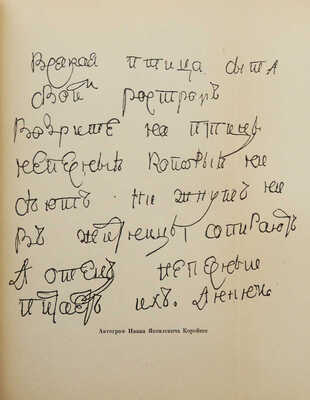 Всякая птица сыта
Свой
Возрите на птицы
небесныя которыи ни
сѣютъ ни жнутъ ни
въ житницы собираютъ
А отецъ небесныи
питаетъ ихъ. Аминь
Автограф Ивана Яковлевича Корейши